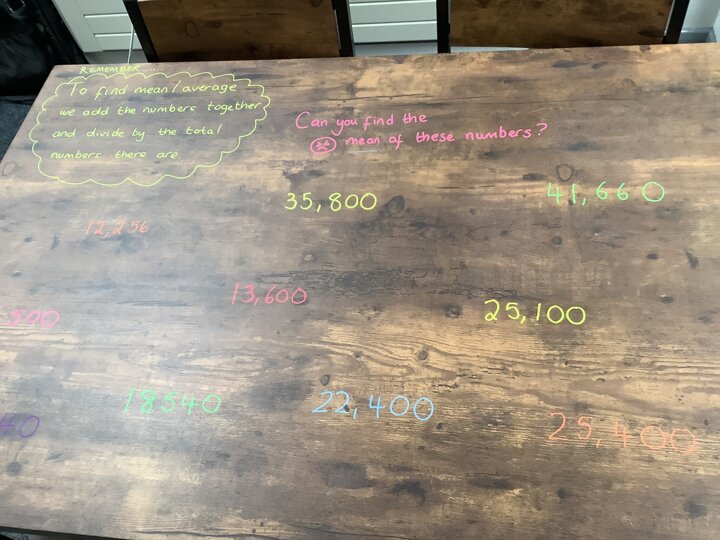 REMEMBER
To find mean/average
we add the numbers together
and divide by the total
numbers there are.
Can you find the
mean of these numbers?
35,800
41,660
12,256
13,600
25,100
18540
22,400
25,400